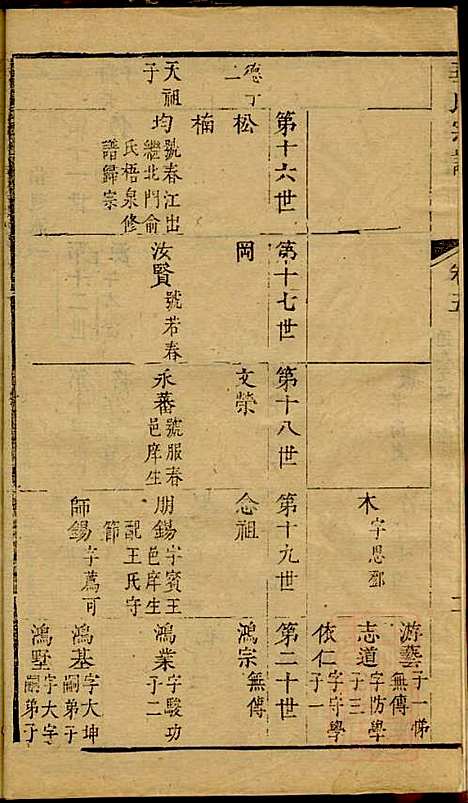 卷五
木 字思鄧
游藝 子一悌 無傳
志道 字防學 子三
依仁 字守學 子一
第十六世
第十七世
第十八世
第十九世
第二十世
德丁二
松
岡
文榮
念祖
鴻宗 無傳
楠
天祖子
均 號春江出繼北門俞氏梧泉修譜歸宗
汝賢 號若春
永蕃 號服春邑庠生
朋錫 字賓王邑庠生配王氏守節
鴻業 字駿功子二
師錫 字薦可
鴻基 字大坤嗣弟子
鴻墅 字大字嗣弟子